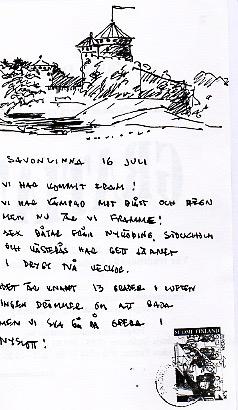 SAVONLINNA 16 JULI
VI HAR KOMMIT FRAM!
VI HAR KÄMPAT MOT BLÅST OCH REGN
MEN NU ÄR VI FRAMME!
SEX BÅTAR FRÅN NYKÖPING, STOCKHOLM
OCH VÄSTERÅS HAR GETT JÄRNET
I DRYGT TVÅ VECKOR.
DET ÄR KNAPPT 13 GRADER I LUFTEN
INGEN DRÖMMER OM ATT BADA
MEN VI SKA GÅ PÅ OPERA I
NYSLOTT!
SUOMI FINLAND